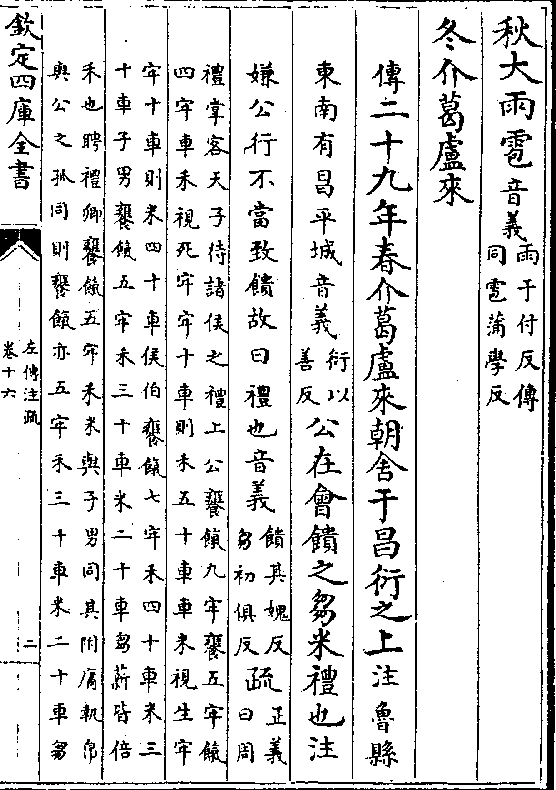 秋大雨雹音義雨于付反傳
同雹蒲學反
冬介葛盧來
傳二十九年春介葛盧來朝舍于昌衍之上注魯縣
東南有昌平城音義衍以
善反公在會饋之芻米禮也注
嫌公行不當致饋故曰禮也音義饋其媿反
芻初俱反疏正義
曰周
禮掌客天子待諸侯之禮上公饔餼九牢饔五牢餼
四牢車禾視死牢牢十車則禾五十車車米視生牢
牢十車則米四十車侯伯饔餼七牢禾四十車米三
十車子男饔餼五牢禾三十車米二十車芻薪皆倍
禾也聘禮卿饔餼五牢禾米與子男同其附庸執帛
與公之孤同則饔餼亦五牢禾三十車米二十車芻
欽定四庫全書
左傳注疏
卷十六
二